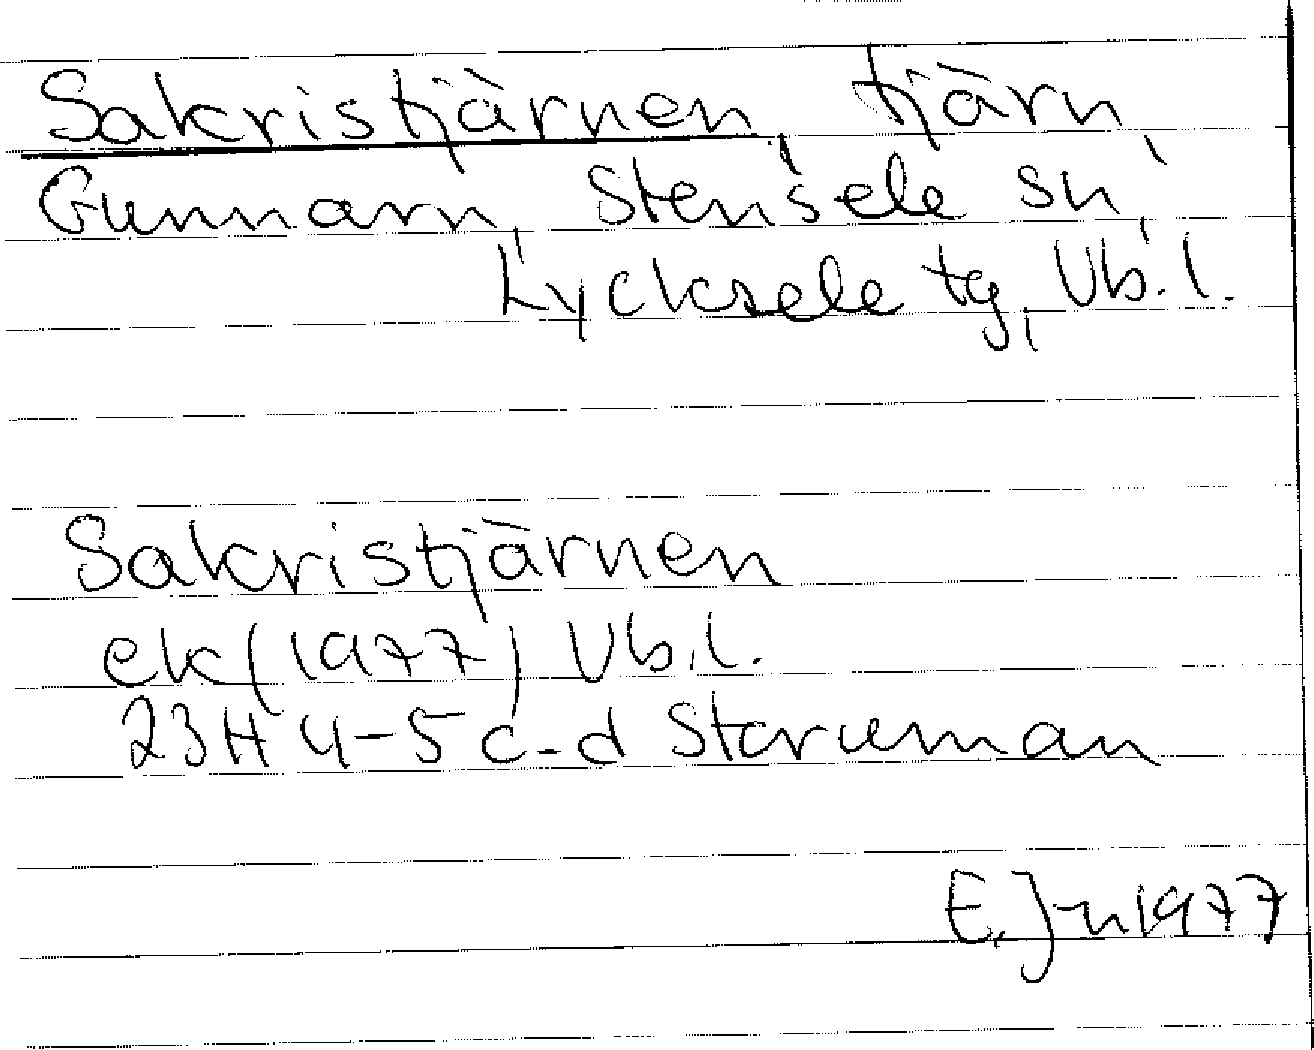 Sakristjärnen, tjärn,
Gunnarn, Stensele sn,
Lycksele tg, Vb.l.
Sakristjärnen
ek (1977) Vb.l.
23H 4-5 c-d Storuman
E. J-n 1977